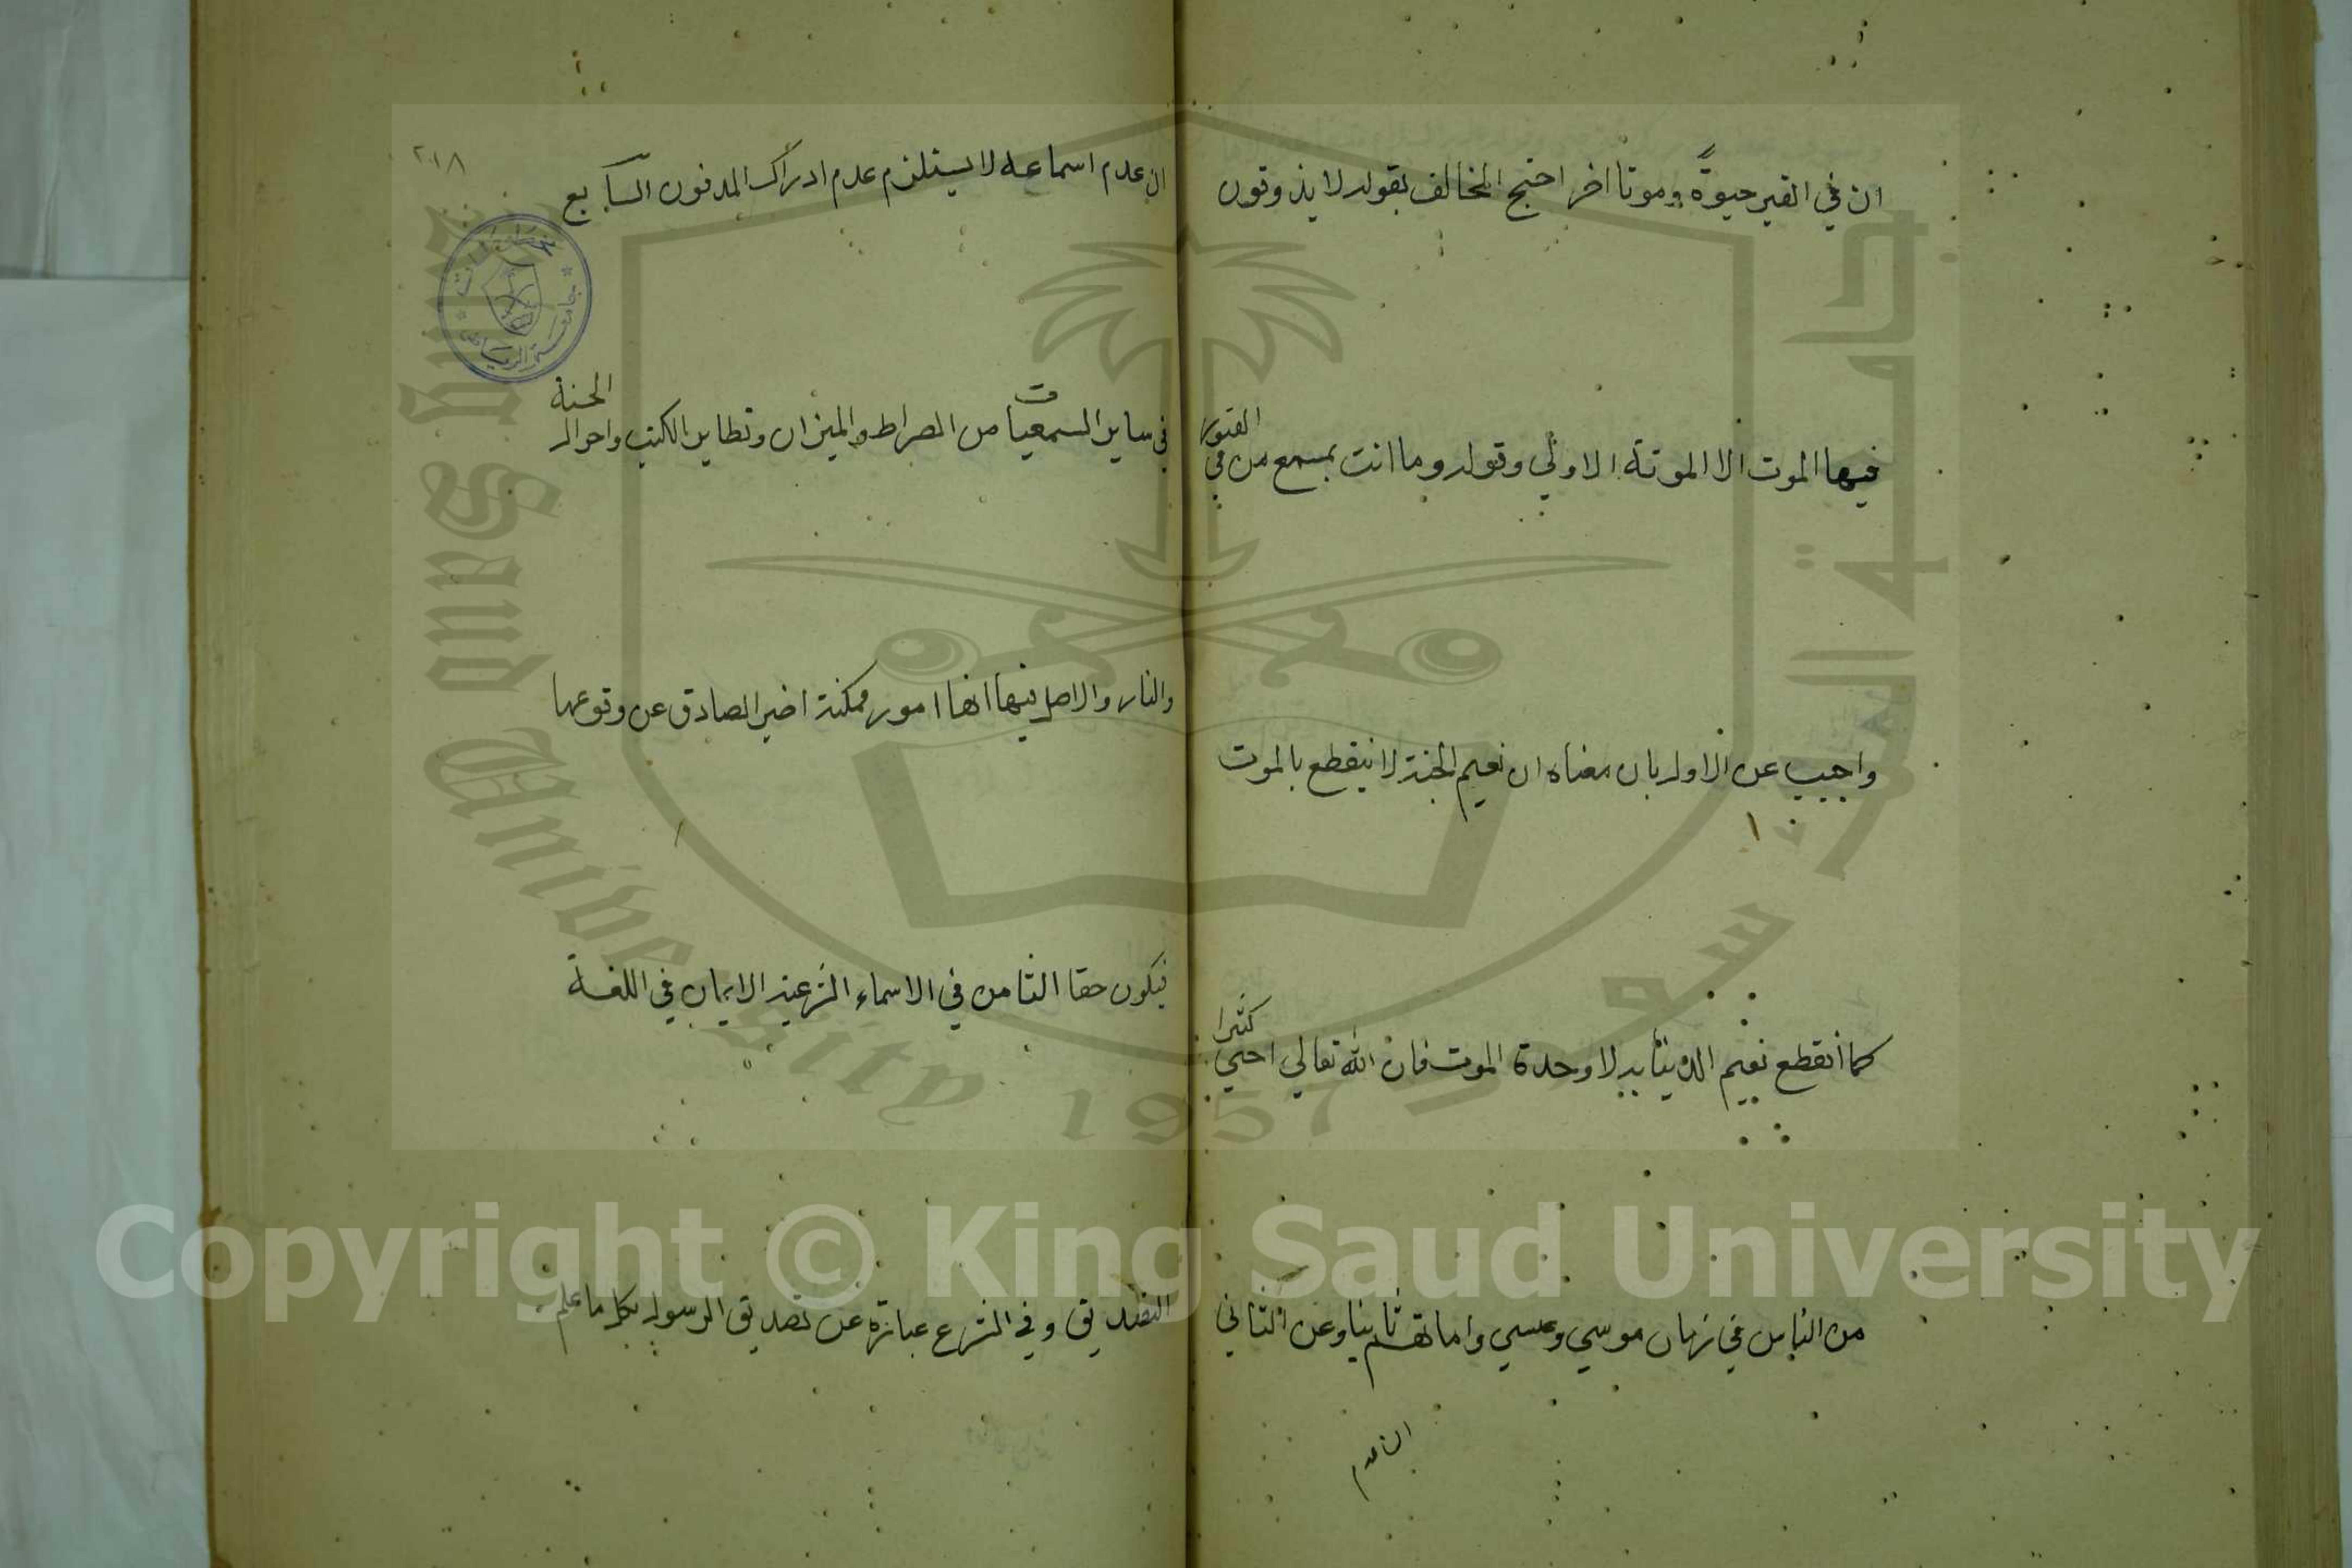 ان في القبر حيوة وموتا اخر احتج المخالف بقوله لا يذوقون
فيها الموت الا الموتة الاولي وقوله وما انت بمسمع من في القبور
واجيب عن الاول بان معناه ان نعيم الجنة لا ينقطع بالموت
كما انقطع نعيم الدنيا به لا وحدة الموت فان الله تعالي احيي كثيرا
من الناس في زمان موسي وعيسي واماتهم ثانيا وعن الثاني
ان عدم
٢١٨
ان عدم اسماعه لا يستلزم عدم ادراك المدفون السابع
في ساير السمعيات من الصراط والميزان وتطاير الكتب واحوال الجنة
والنار والاصل فيها انها امور ممكنة اخبر الصادق عن وقوعها
فيكون حقا الثامن في الاسماء الشرعية الايمان في اللغة
التصديق وفي الشرع عبارة عن تصديق الرسول بكل ما علم
جامعة الرياض
King Saud University 1957
جامعة الملك سعود
Copyright © King Saud University